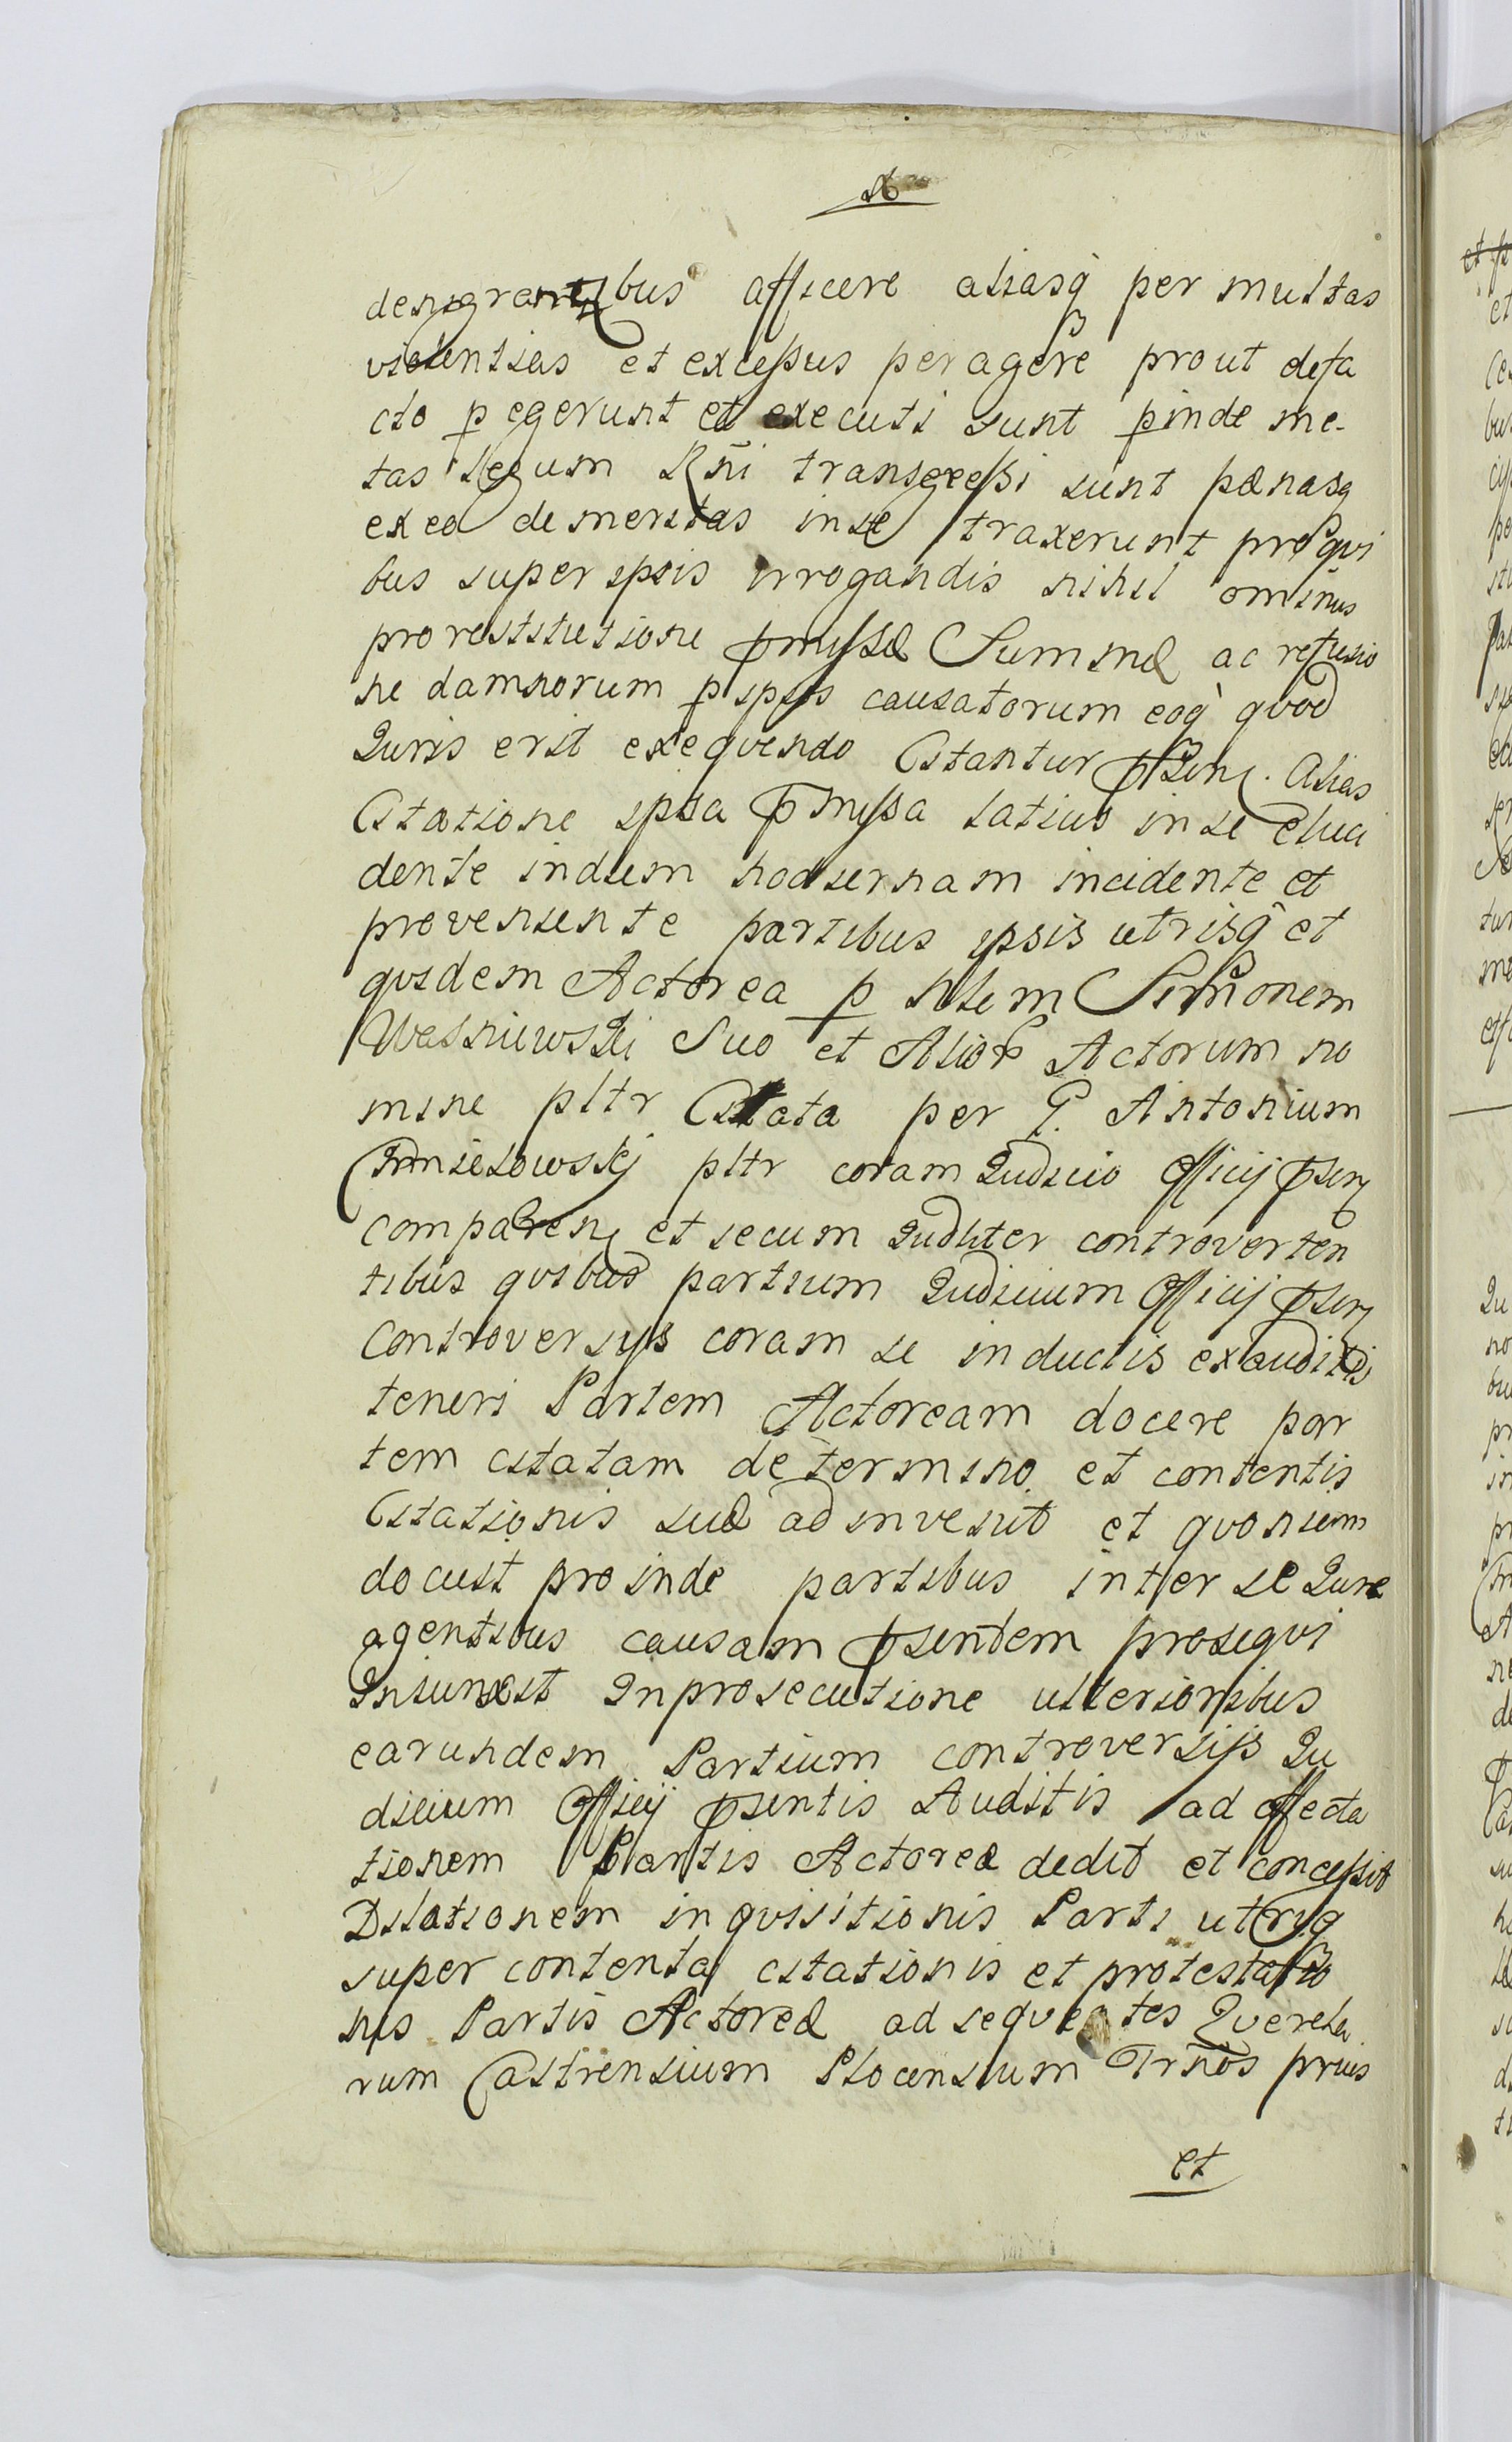 denigrantibus afficere aliasq per multas
violentias et excessus peragere prout defa
cto pegerunt et executi sunt pinde me-
tas legum Rni transgressi sunt pænasq
exea demeritas inse traxerunt pro qvi
bus super ipsis irrogandis nihil ominus
pro restitutione pmissæ Summæ ac refusio
ne damnorum p ipsos causatorum eoq qvod
Juris erit exeqvendo Citantur psen. Alias
Citatione ipsa pmissa latius inse eluci
dente indiem hodiernam incidente et
proveniente partibus ipsis utrisq et
qvidem Actorea p Nlem Simonem
Wasniewski Suo et Alior Actorum no
mine pltr Citata per G. Antonium
pltr coram Judicio Officij psen
comparen et secum Judliter controverten
tibus qvibus partium Judicium Officij psen
Controversijs coram se inductis exauditis
teneri Partem Actoream docere par
tem citatam de termino et contentis
Citationis suæ adinvenit et qvoniam
docuit proinde partibus inter se Jure
agentibus causam psentem proseqvi
Injunxit Inprosecutione ulterioribus
earundem Partium controversijs Ju
dicium Officij psentis Auditis ad affecta
tionem Partis Actoreæ dedit et concessit
Dilationem inqvisitionis Parti utriq
super contenta citationis et protestatio
nis Partis Actoreæ ad seqventes Qverela
rum Castrensium Plocensium Trnos prius
et